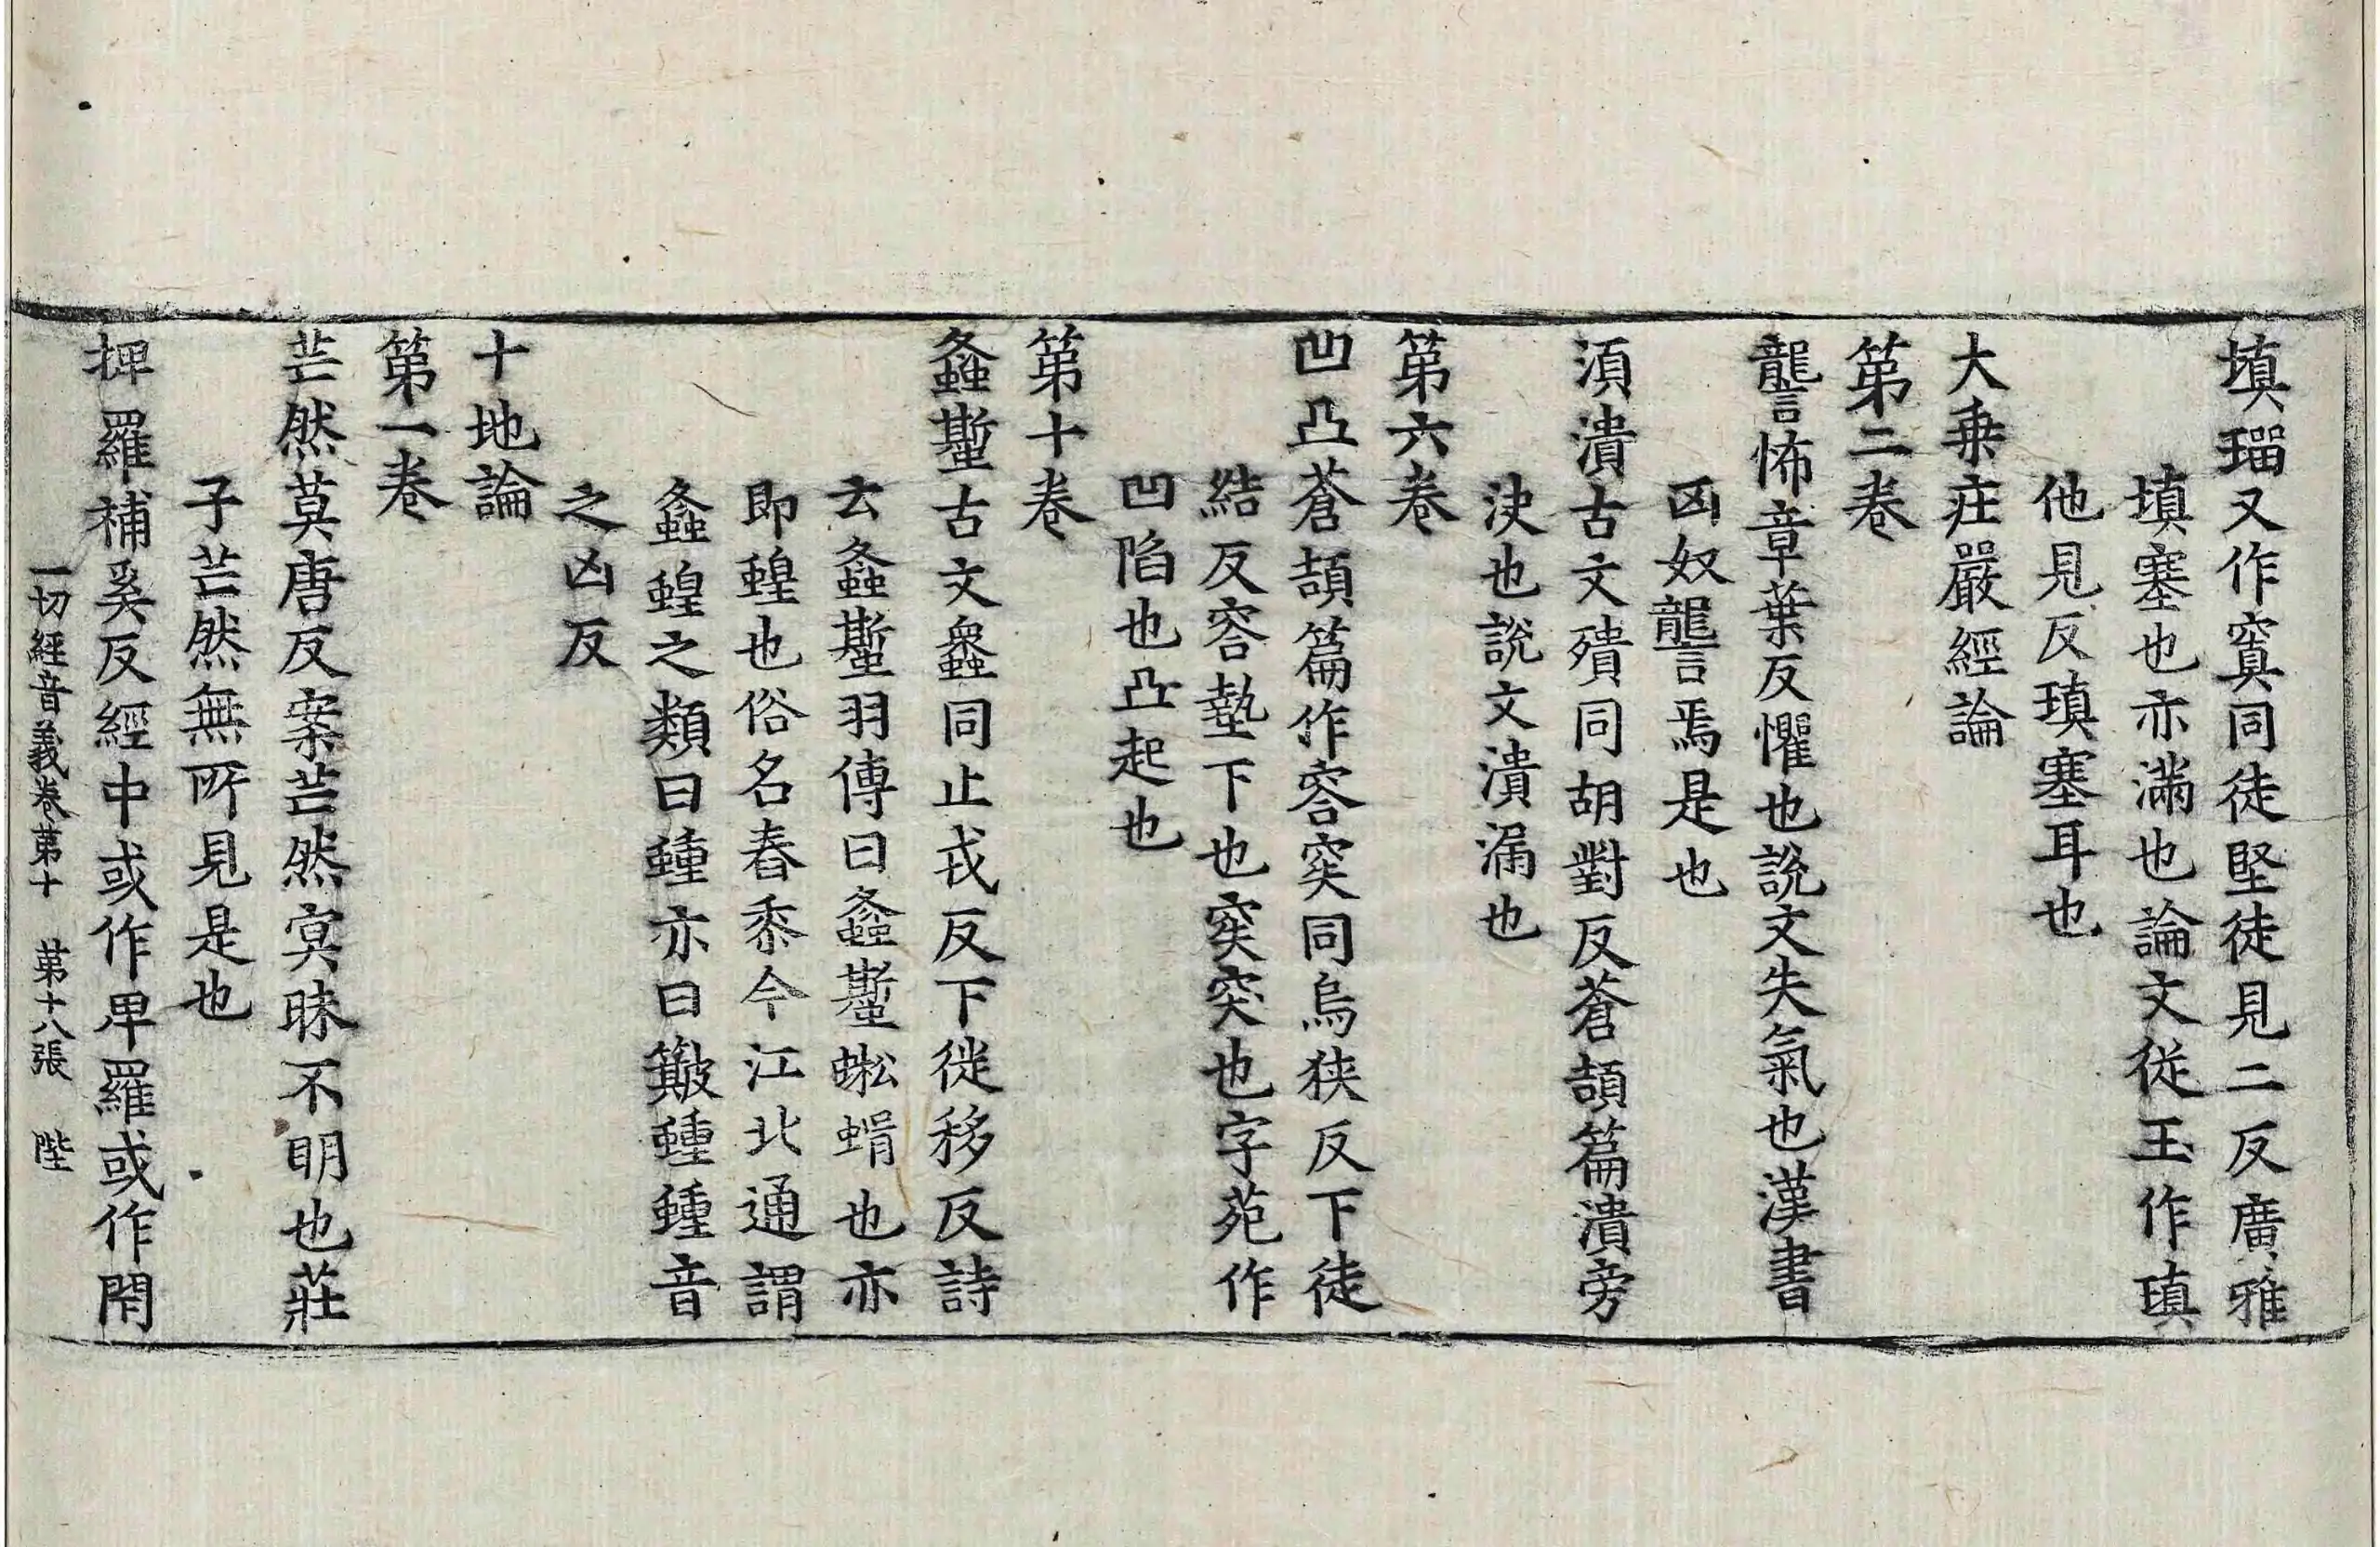 填瑠又作窴同徒堅徒見二反廣雅
填塞也亦滿也論文從玉作瑱
他見反瑱塞耳也
大乗庄嚴經論
第二卷
讋怖章葉反懼也說文失氣也漢書
凶奴讋焉是也
湏潰古文殨同胡對反蒼頡篇潰旁
決也說文潰漏也
第六卷
凹凸蒼頡篇作容突同烏狹反下徒
結反容墊下也突突也字苑作
凹陷也凸起也
第十卷
螽蟴古文螽同止戎反下徙移反詩
云螽蟴羽傳曰螽蟴蜙蝑也亦
即蝗也俗名舂黍今江北通謂
螽蝗之類曰蝩亦曰簸蝩蝩音
之凶反
十地論
第一卷
芒然莫唐反案芒然冥昧不明也莊
子芒然無所見是也
捭羅補奚反經中或作卑羅或作閇
一切經音義卷第十 第十八張 陛